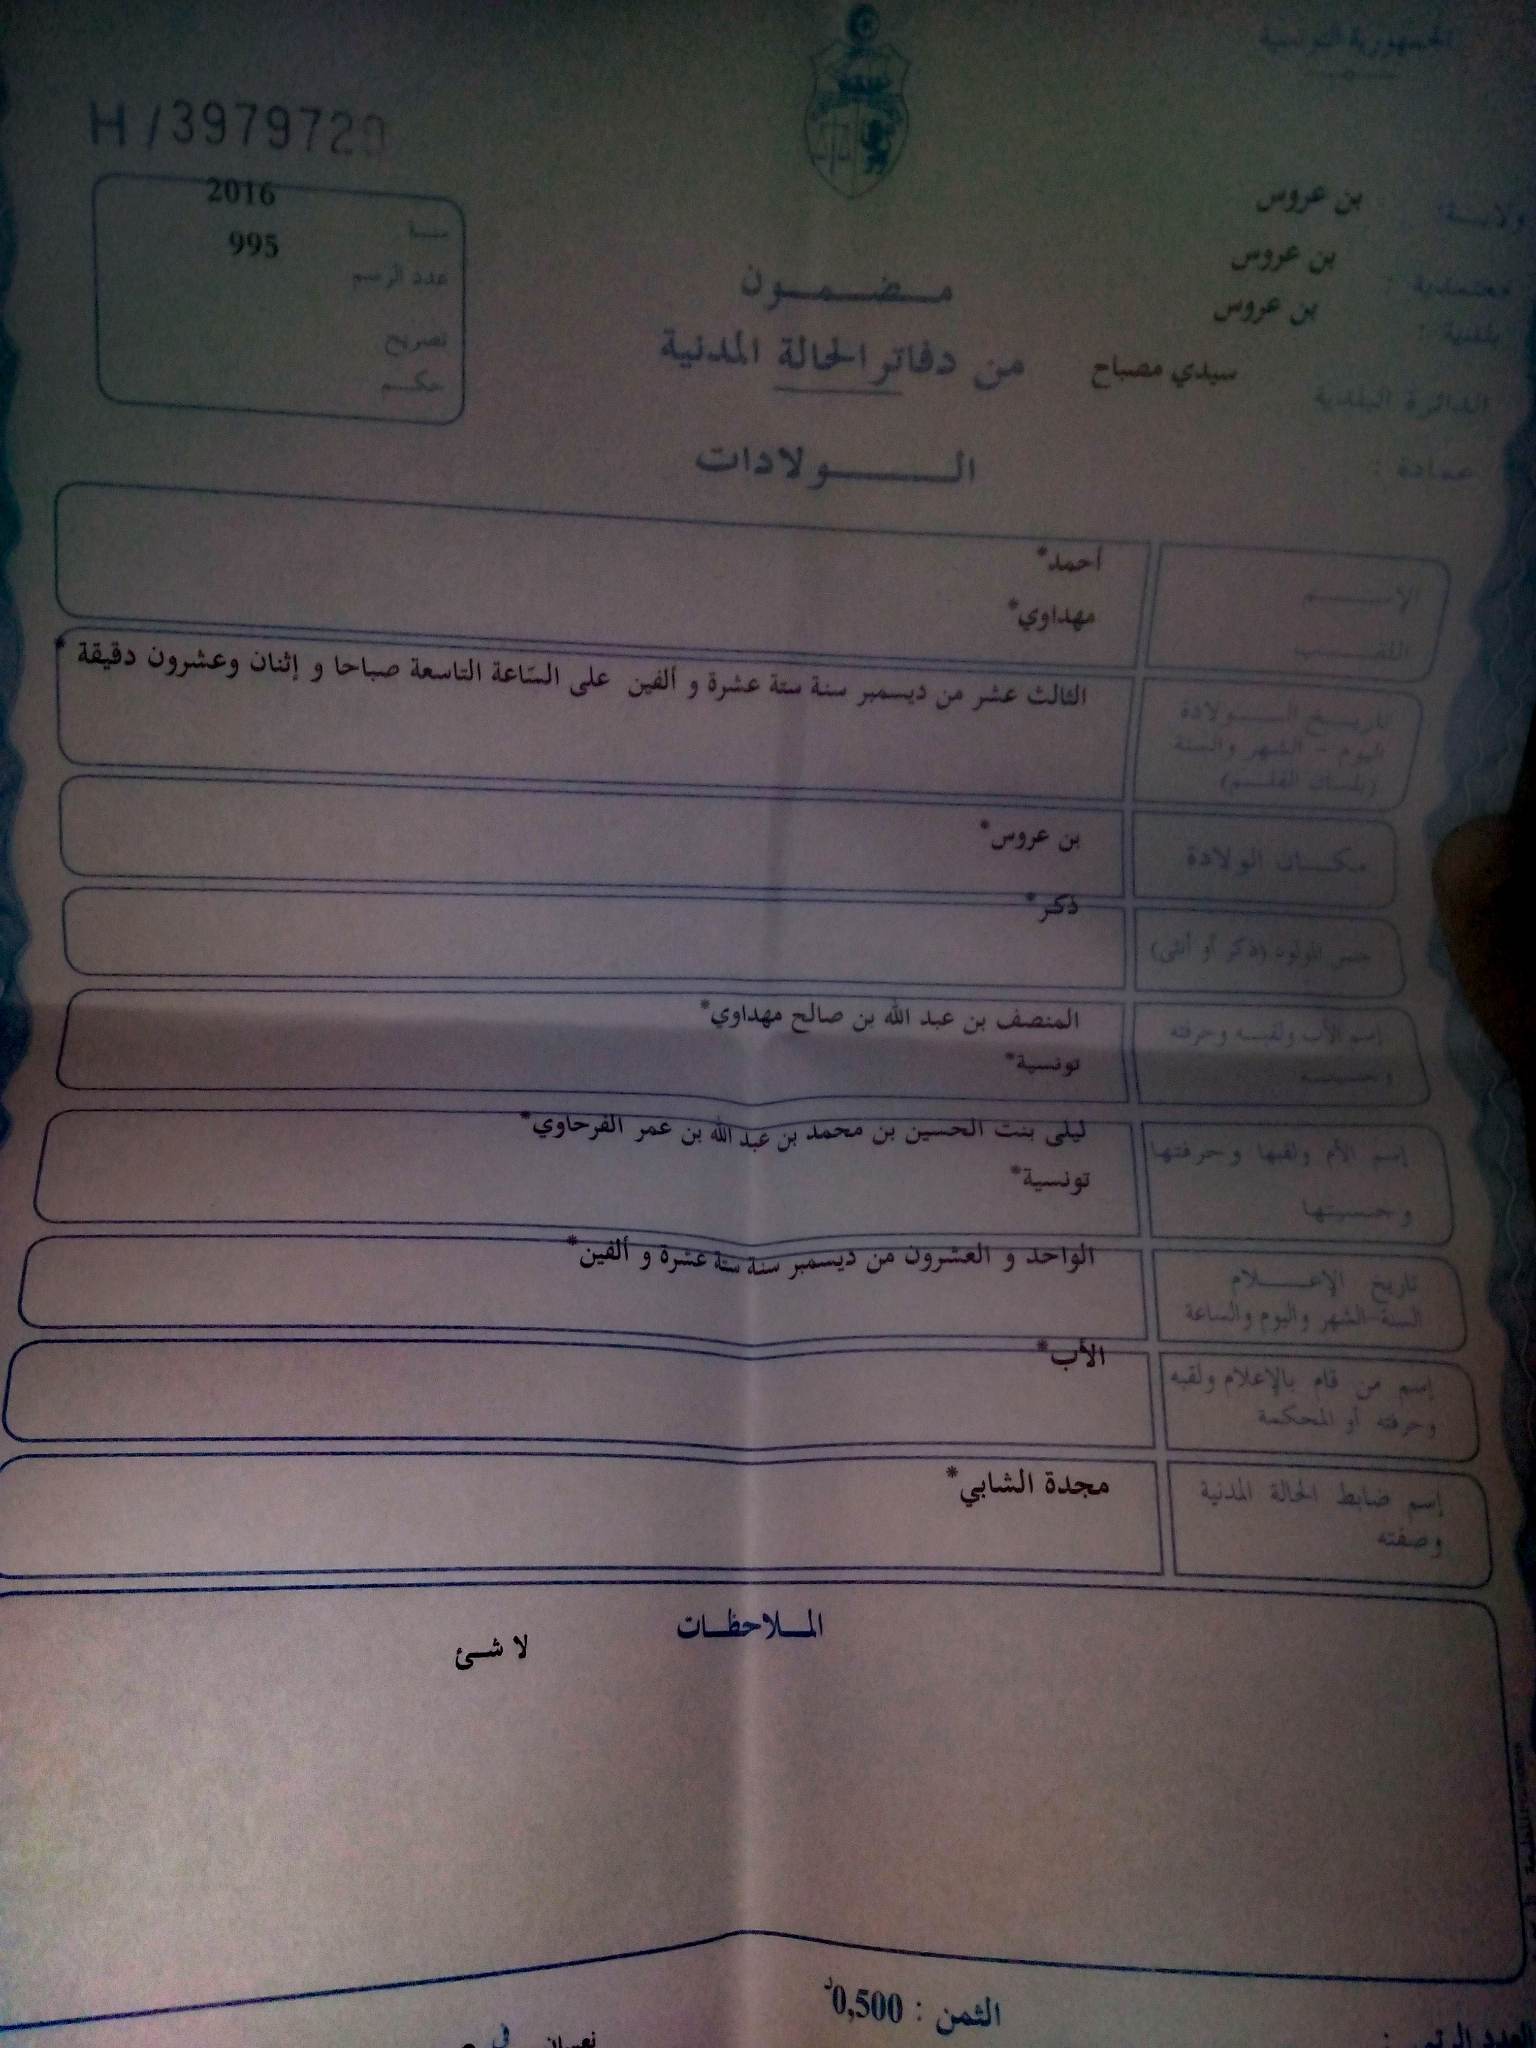 الجمهورية التونسية
H/3979720
ولايـــة : بن عروس
معتمدية : بن عروس
بلدية : بن عروس
الدائرة البلدية سيدي مصباح
عمادة :
سنــة 2016
عدد الرسم 995
تصريح
حكــم
مـــضـــمـــون
من دفاتر الحالة المدنية
الـــــولادات
الإســــــم أحمد*
اللقــــب مهداوي*
تاريــخ الــــولادة
اليوم - الشهر والسنة
(بلسان القلــم)
الثالث عشر من ديسمبر سنة ستة عشرة و ألفين على السّاعة التاسعة صباحا و إثنان وعشرون دقيقة *
مكـــان الولادة بن عروس*
جنس المولود (ذكر أو أنثى) ذكر*
إسم الأب ولقبــه وحرفته المنصف بن عبد الله بن صالح مهداوي*
وجنسيتــه تونسية*
إسم الأم ولقبها وحرفتها ليلى بنت الحسين بن محمد بن عبد الله بن عمر الفرحاوي*
وجنسيتها تونسية*
تاريخ الإعــــلام الواحد و العشرون من ديسمبر سنة ستة عشرة و ألفين*
السنة-الشهر واليوم والساعة
إسم من قام بالإعلام ولقبه الأب*
وحرفته أو المحكمة
إسم ضابط الحالة المدنية مجدة الشابي*
وصفته
المــلاحظــات
لا شــئ
الثمن : 0,500د
العدد الرتبي :
في